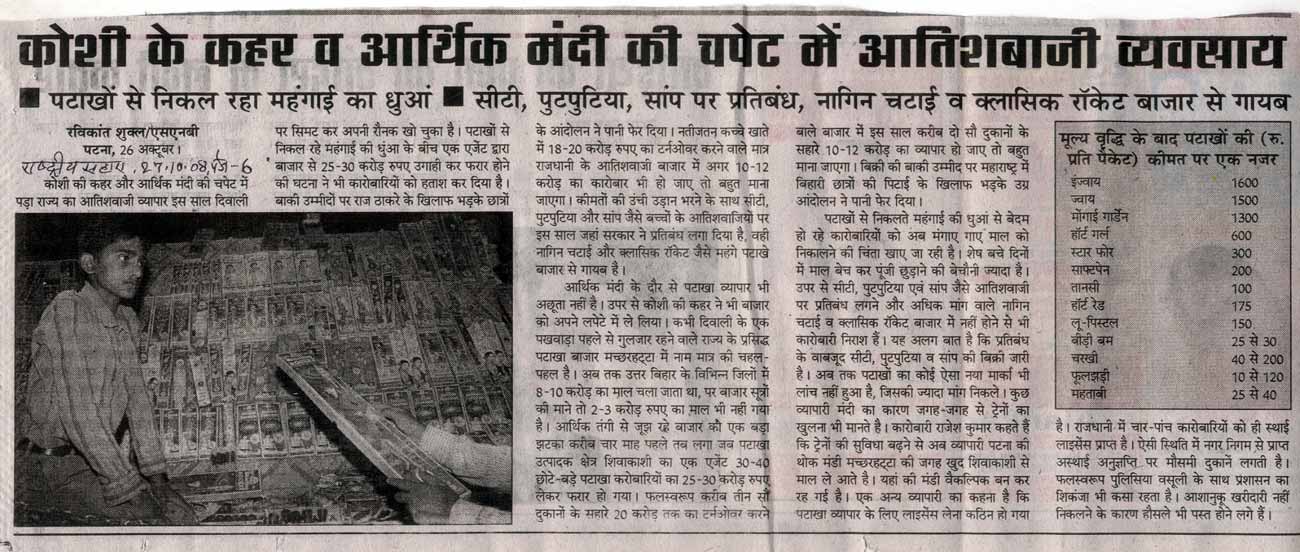 कोशी के कहर व आर्थिक मंदी की चपेट में आतिशबाजी व्यवसाय
■ पटाखों से निकल रहा महंगाई का धुआं ■ सीटी, पुटपुटिया, सांप पर प्रतिबंध, नागिन चटाई व क्लासिक रॉकेट बाजार से गायब
रविकांत शुक्ल/एसएनबी
पटना, 26 अक्टूबर।
राष्ट्रीय सहारा, 27.10.08, पृ०-6
कोशी की कहर और आर्थिक मंदी की चपेट में
पड़ा राज्य का आतिशबाजी व्यापार इस साल दिवाली
पर सिमट कर अपनी रौनक खो चुका है। पटाखों से
निकल रहे महंगाई की धुंआ के बीच एक एजेंट द्वारा
बाजार से 25-30 करोड़ रुपए उगाही कर फरार होने
की घटना ने भी कारोबारियों को हताश कर दिया है।
बाकी उम्मीदों पर राज ठाकरे के खिलाफ भड़के छात्रों
के आंदोलन ने पानी फेर दिया। नतीजतन कच्चे खाते
में 18-20 करोड़ रुपए का टर्नओवर करने वाले मात्र
राजधानी के आतिशबाजी बाजार में अगर 10-12
करोड़ का कारोबार भी हो जाए तो बहुत माना
जाएगा। कीमतों की उंची उड़ान भरने के साथ सीटी,
पुटपुटिया और सांप जैसे बच्चों के आतिशबाजियों पर
इस साल जहां सरकार ने प्रतिबंध लगा दिया है, वही
नागिन चटाई और क्लासिक रॉकेट जैसे महंगे पटाखे
बाजार से गायब है।
आर्थिक मंदी के दौर से पटाखा व्यापार भी
अछूता नहीं है। उपर से कोशी की कहर ने भी बाजार
को अपने लपेटे में ले लिया। कभी दिवाली के एक
पखवाड़ा पहले से गुलजार रहने वाले राज्य के प्रसिद्ध
पटाखा बाजार मच्छरहट्टा में नाम मात्र की चहल-
पहल है। अब तक उत्तर बिहार के विभिन्न जिलों में
8-10 करोड़ का माल चला जाता था, पर बाजार सूत्रों
की माने तो 2-3 करोड़ रुपए का माल भी नहीं गया
है। आर्थिक तंगी से जूझ रहे बाजार को एक बड़ा
झटका करीब चार माह पहले तब लगा जब पटाखा
उत्पादक क्षेत्र शिवाकाशी का एक एजेंट 30-40
छोटे-बड़े पटाखा करोबारियों का 25-30 करोड़ रुपए
लेकर फरार हो गया। फलस्वरूप करीब तीन सौ
दुकानों के सहारे 20 करोड़ तक का टर्नओवर करने
वाले बाजार में इस साल करीब दो सौ दुकानों के
सहारे 10-12 करोड़ का व्यापार हो जाए तो बहुत
माना जाएगा। बिक्री की बाकी उम्मीद पर महाराष्ट्र में
बिहारी छात्रों की पिटाई के खिलाफ भड़के उग्र
आंदोलन ने पानी फेर दिया।
पटाखों से निकलते महंगाई की धुआं से बेदम
हो रहे कारोबारियों को अब मंगाए गाए माल को
निकालने की चिंता खाए जा रही है। शेष बचे दिनों
में माल बेच कर पूंजी छुड़ाने की बेचौनी ज्यादा है।
उपर से सीटी, पुटपुटिया एवं सांप जैसे आतिशवाजी
पर प्रतिबंध लगने और अधिक मांग वाले नागिन
चटाई व क्लासिक रॉकेट बाजार में नहीं होने से भी
कारोबारी निराश हैं। यह अलग बात है कि प्रतिबंध
के बाबजूद सीटी, पुटपुटिया व सांप की बिक्री जारी
है। अब तक पटाखों का कोई ऐसा नया मार्का भी
लांच नहीं हुआ है, जिसकी ज्यादा मांग निकले। कुछ
व्यापारी मंदी का कारण जगह-जगह से ट्रेनों का
खुलना भी मानते है। कारोबारी राजेश कुमार कहते हैं
कि ट्रेनों की सुविधा बढ़ने से अब व्यापारी पटना की
थोक मंडी मच्छरहट्टा की जगह खुद शिवाकाशी से
माल ले आते है। यहां की मंडी वैकल्पिक बन कर
रह गई है। एक अन्य व्यापारी का कहना है कि
पटाखा व्यापार के लिए लाइसेंस लेना कठिन हो गया
मूल्य वृद्धि के बाद पटाखों की (रु.
प्रति पैकेट) कीमत पर एक नजर
इंज्वाय 1600
ज्वाय 1500
मोंगाई गार्डेन 1300
हॉर्ट गर्ल 600
स्टार फोर 300
साफ्टपेन 200
तानसी 100
हॉर्ट रेड 175
लू-पिस्टल 150
बीड़ी बम 25 से 30
चरखी 40 से 200
फूलझड़ी 10 से 120
महताबी 25 से 40
है। राजधानी में चार-पांच कारोबारियों को ही स्थाई
लाइसेंस प्राप्त है। ऐसी स्थिति में नगर निगम से प्राप्त
अस्थाई अनुज्ञप्ति पर मौसमी दुकानें लगती है।
फलस्वरूप पुलिसिया वसूली के साथ प्रशासन का
शिकंजा भी कसा रहता है। आशानुक खरीदारी नहीं
निकलने के कारण हौसले भी पस्त होने लगे हैं।